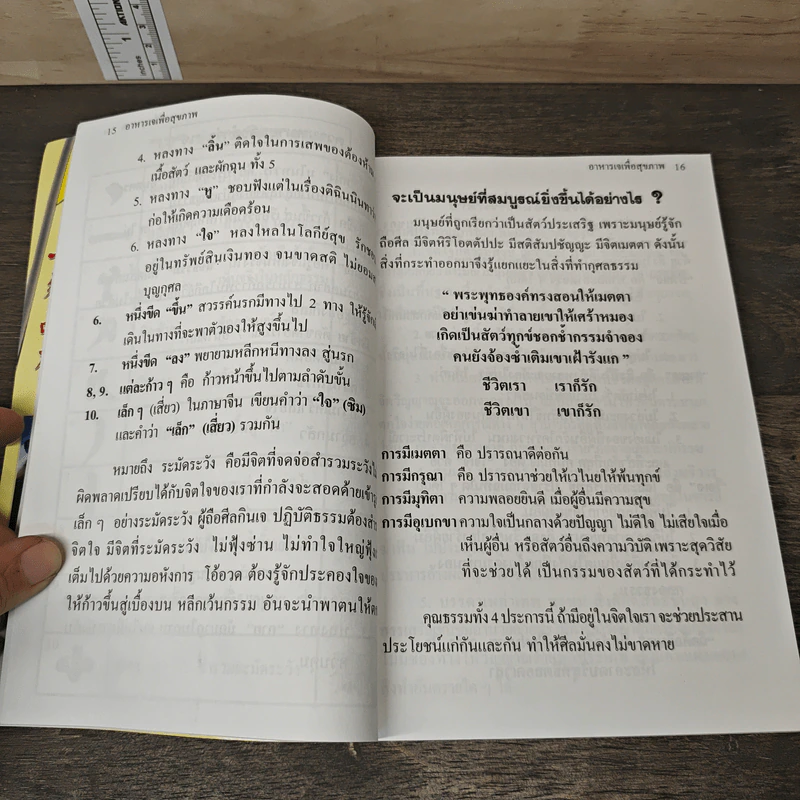 15 อาหารเจเพื่อสุขภาพ
4. หลงทาง “ลิ้น” ติดใจในการเสพของต้องห้าม
เนื้อสัตว์ และผักฉุน ทั้ง 5
5. หลงทาง “หู” ชอบฟังแต่ในเรื่องติฉินนินทา
ก่อให้เกิดความเดือดร้อน
6. หลงทาง “ใจ” หลงใหลในโลกีย์สุข
อยู่ในทรัพย์สินเงินทอง จนขาดสติ
บุญกุศล
6. หนึ่งขีด “ขึ้น” สวรรค์นรกมีทางไป 2 ทาง ให้รู้จัก
เดินในทางที่จะพาตัวเองให้สูงขึ้นไป
7. หนึ่งขีด “ลง” พยายามหลีกหนีทางลง สู่นรก
8, 9. แต่ละก้าว ๆ คือ ก้าวหน้าขึ้นไปตามลำดับขั้น
10. เล็ก ๆ (เสี่ยว) ในภาษาจีน เขียนคำว่า “ใจ” (ซิม)
และคำว่า “เล็ก” (เสี่ยว) รวมกัน
หมายถึง ระมัดระวัง คือมีจิตที่จดจ่อสำรวมระวัง
ผิดพลาดเปรียบได้กับจิตใจของเราที่กำลังจะสอดด้ายเข้า
เล็ก ๆ อย่างระมัดระวัง ผู้ถือศีลกินเจ ปฏิบัติธรรมต้อง
จิตใจ มีจิตที่ระมัดระวัง ไม่ฟุ้งซ่าน ไม่ทำใจใหญ่
เต็มไปด้วยความอหังการ โอ้อวด ต้องรู้จักประคองใจของ
ให้ก้าวขึ้นสู่เบื้องบน หลีกเว้นกรรม อันจะนำพาตนให้
อาหารเจเพื่อสุขภาพ 16
จะเป็นมนุษย์ที่สมบูรณ์ยิ่งขึ้นได้อย่างไร ?
มนุษย์ที่ถูกเรียกว่าเป็นสัตว์ประเสริฐ เพราะมนุษย์รู้จัก
ถือศีล มีจิตหิริโอตตัปปะ มีสติสัมปชัญญะ มีจิตเมตตา ดังนั้น
สิ่งที่กระทำออกมาจึงรู้แยกแยะในสิ่งที่ทำกุศลธรรม
“ พระพุทธองค์ทรงสอนให้เมตตา
อย่าเข่นฆ่าทำลายเขาให้เศร้าหมอง
เกิดเป็นสัตว์ทุกข์ชอกช้ำกรรมจำจอง
คนยังจ้องซ้ำเติมเขาเฝ้ารังแก ”
ชีวิตเรา เราก็รัก
ชีวิตเขา เขาก็รัก
การมีเมตตา คือ ปรารถนาดีต่อกัน
การมีกรุณา คือ ปรารถนาช่วยให้เวไนยให้พ้นทุกข์
การมีมุทิตา ความพลอยยินดี เมื่อผู้อื่นมีความสุข
การมีอุเบกขา ความใจเป็นกลางด้วยปัญญา ไม่ดีใจ ไม่เสียใจเมื่อ
เห็นผู้อื่น หรือสัตว์อื่นถึงความวิบัติ เพราะสุดวิสัย
ที่จะช่วยได้ เป็นกรรมของสัตว์ที่ได้กระทำไว้
คุณธรรมทั้ง 4 ประการนี้ ถ้ามีอยู่ในจิตใจเรา จะช่วยประสาน
ประโยชน์แก่กันและกัน ทำให้ศีลมั่นคงไม่ขาดหาย